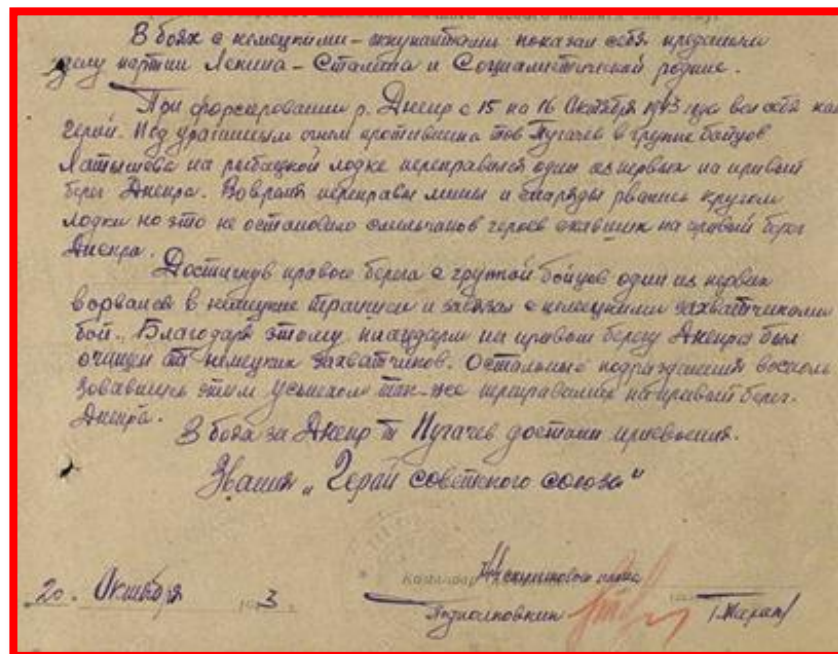 В боях с немецкими-оккупантами показал себя преданным
делу партии Ленина-Сталина и Социалистической родине.
При форсировании р. Днепр с 15 на 16 Октября 1943 года вел себя как
Герой. Под ураганным огнем противника тов Пугачев в группе бойцов
Латышева на рыбацкой лодке переправился один из первых на правый
берег Днепра. Вовремя переправы мины и снаряды рвались кругом
лодки но это не остановило смельчаков героев на правый берег
Днепра.
Достигнув правого берега с группой бойцов один из первых
ворвался в немецкие траншеи и завязал с немецкими захватчиками
бой. Благодаря этому плацдарм на правом берегу Днепра был
очищен от немецких захватчиков. Остальные подразделения восполь
зовавшись этим успехом так-же переправились на правый берег.
Днепра.
В боях за Днепр т Пугачев достоин присвоения.
Звания „Герой советского союза"
Командир полка
20. Октября 1943 г.
Подполковник